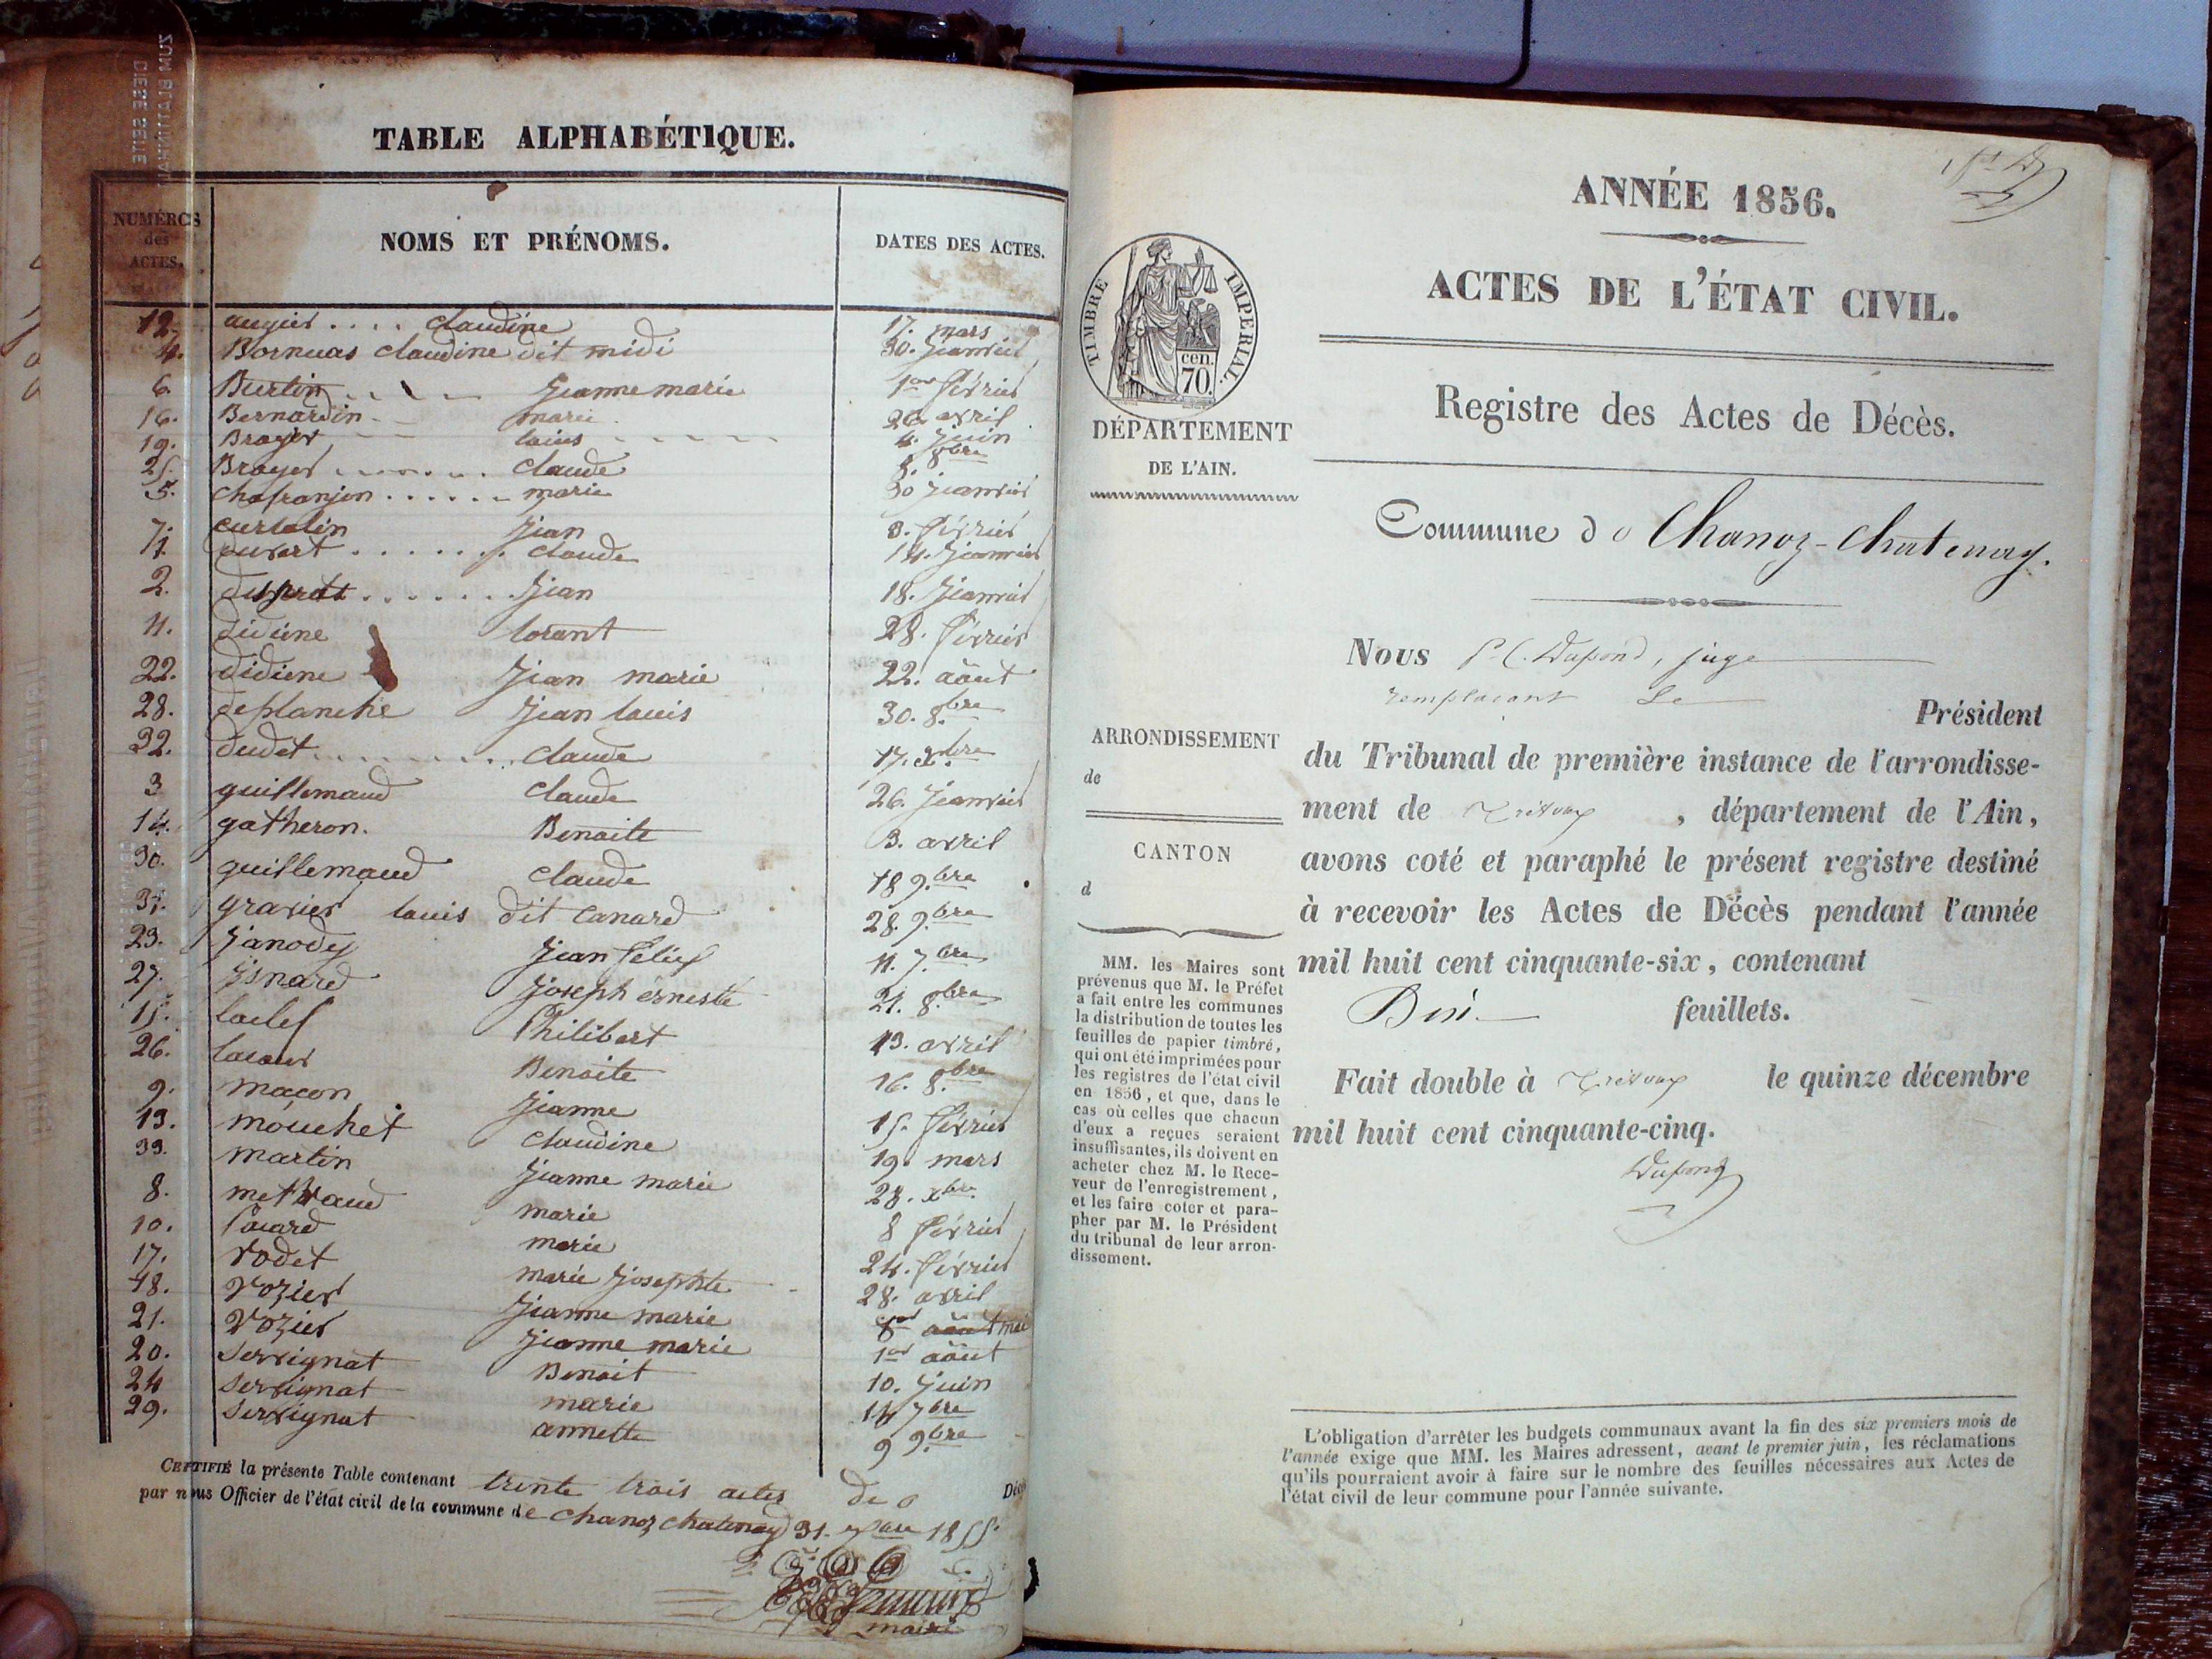 TABLE ALPHABÉTIQUE.
NUMÉROS des ACTES. NOMS ET PRÉNOMS. DATES DES ACTES.
12. augier .... claudine 17. mars
4. Bornuas claudine dit midi 30. Jeanvier
6. Burtin Jeanne marie 1er février
16. Bernardin marie 26. avril
19. Broyer louis 4. Juin
25. Broyer claude 8. 8bre
5. chafranjon ...... marie 30 Jeanvier
7. curtelin Jean 8. février
1. duvert ....... claude 14. Jeanvier
2. ...... Jean 18. Jeanvier
11. didiene lorant 28. février
22. didiene Jean marie 22. aôut
28. deplanche Jean louis 30. 8.bre
32. dudet ........ claude 17. xbre
3 guillemaud claude 26. Jeanvier
14. gatheron. Benoite 3. avril
30. guillemaud claude 18 9.bre
31. gravier louis dit canard 28. 9.bre
23. Janody Jean félix 11. 7.bre
27. Jsnard Joseph érneste 21. 8.bre
15. Philibert 13. avril
26. lacour Benoite 16. 8.bre
9. maçon Jeanne 15. février
13. mouchet claudine 19. mars
33. martin Jeanne marie 28. xbre
8. methraud marie 8 février
10. marie 24. février
17. rodet marie Josephte 28. avril
18. rozier Jeanne marie aôut mai
21. rozier Jeanne marie 1er aôut
20. servignat Benoit 10. Juin
24 servignat marie 14 7bre
29. servignat annette 9 9.bre
CERTIFIÉ la présente Table contenant trente trois actes de Déc
par nous Officier de l'état civil de la commune de chanoz chatenay 31. xbre 1855.
maire
ANNÉE 1856.
ACTES DE L'ÉTAT CIVIL.
TIMBRE IMPERIAL.
cen.
70.
Registre des Actes de Décès.
DÉPARTEMENT
DE L'AIN.
Commune de Chanoz-Chatenay.
Nous P. C. Dupond, juge
remplacant Le
Président
du Tribunal de première instance de l'arrondisse-
ment de Trévoux , département de l'Ain,
avons coté et paraphé le présent registre destiné
à recevoir les Actes de Décès pendant l'année
mil huit cent cinquante-six, contenant
Dix feuillets.
Fait double à Trévoux le quinze décembre
mil huit cent cinquante-cinq.
Dupond
ARRONDISSEMENT
de
CANTON
d
MM. les Maires sont
prévenus que M. le Préfet
a fait entre les communes
la distribution de toutes les
feuilles de papier timbré,
qui ont été imprimées pour
les registres de l'état civil
en 1856, et que, dans le
cas où celles que chacun
d'eux a reçues seraient
insuffisantes, ils doivent en
acheter chez M. le Rece-
veur de l'enregistrement,
et les faire coter et para-
pher par M. le Président
du tribunal de leur arron-
dissement.
L'obligation d'arrêter les budgets communaux avant la fin des six premiers mois de
l'année exige que MM. les Maires adressent, avant le premier juin, les réclamations
qu'ils pourraient avoir à faire sur le nombre des feuilles nécessaires aux Actes de
l'état civil de leur commune pour l'année suivante.